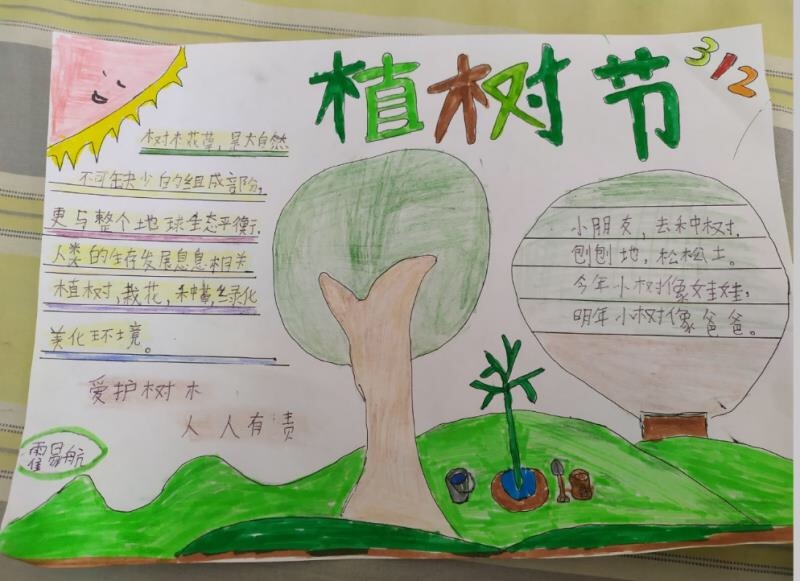 植树节
312
树木花草，是大自然
不可缺少的组成部份，
更与整个地球生态平衡，
人类的生存发展息息相关
植树，栽花，种草，绿化
美化环境。
爱护树木
人人有责
霍易航
小朋友，去种树，
刨刨地，松松土。
今年小树像娃娃，
明年小树像爸爸。